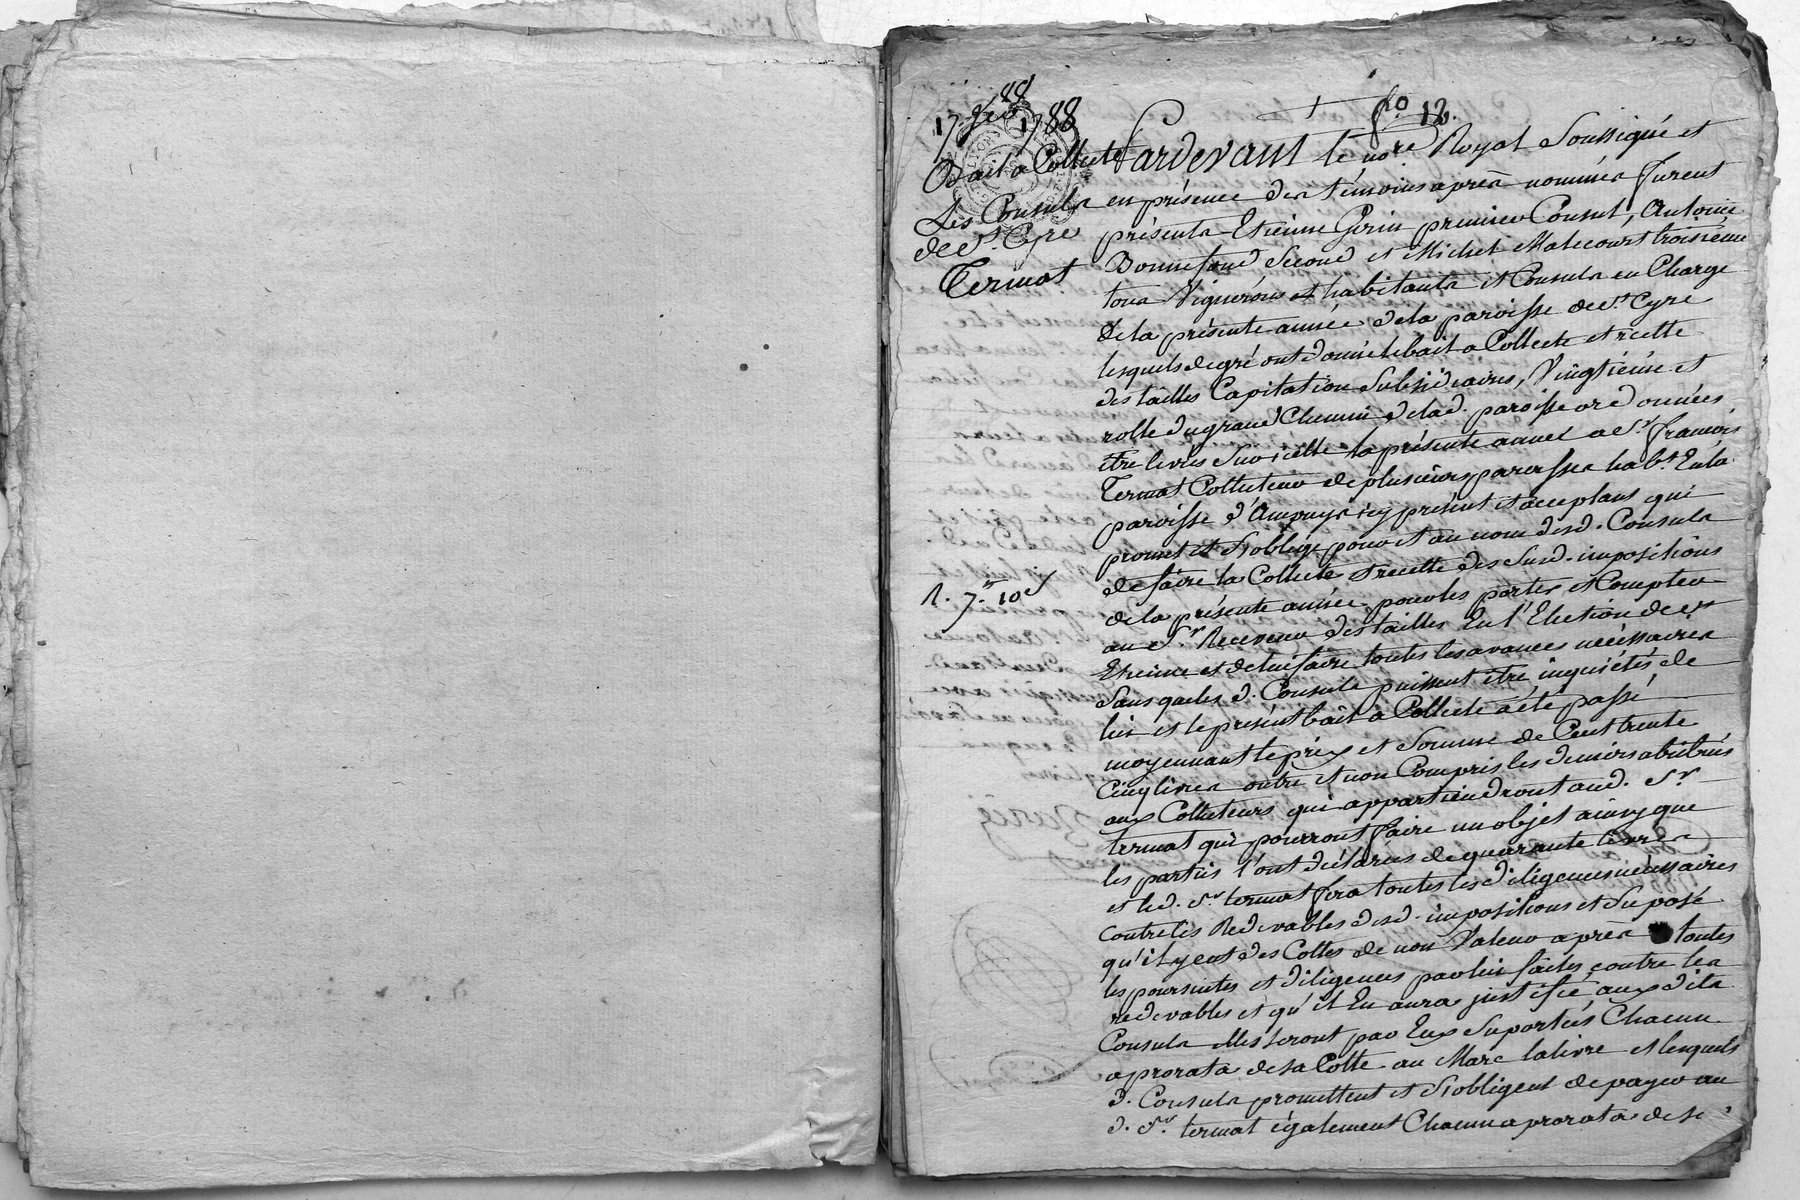 fo 12.
17 1788
Bail à Collecte
Les Consuls
de St. Cyre
Termat
R. 7tt 10s
Pardevant le nore Royal Soussigné et
en présence des témoins après nommés furent
présents Etienne Gerin premier Consul, Antoine
Bonnefond Second et Michel Malecourt troisiéme
tous Vignerons et habitants et Consuls en Charge
De la présente année de la paroisse de St. Cyre
lesquels de gré ont donné le bail a Collecte et recette
des tailles Capitation Subsidiaires, Vingtiéme et
rolle du grand Chemin de lad. paroisse ordonnées
être livrés Sur icelle la présente année a Sr. françois
Termat Collecteur de plusieurs paroisses habt. En la
paroisse d'Ampuys icy présent et acceptant qui
promet et S'oblige pour et au nom desd. Consuls
de faire la Collecte et recette des Susd. impositions
de la présente année pour les porter et Compter
au Sr. Receveur des tailles En l'Election de St
Etienne et de lui faire toutes les avances nécéssaires
Sans que les d. Consuls puissent être inquiétés de
lui et le présent bail à Collecte a été passé
moyennant le prix et Somme de Cent trente
Cinq livres outre et non Compris les deniers atribués
aux Collecteurs qui appartiendront aud. Sr.
termat qui pourront faire un objet ainsy que
les parties l'ont déclarées de quarante livres
et led. Sr. termat fera toutes les diligences nécéssaires
contre les Redevables desd. impositions et Suposé
qu'il y eut des Cottes de non Valeur après toutes
les poursuites et diligences par lui faites contre les
redevables et qu'il En aura justifié aux dits
Consuls elles seront par Eux Suportées Chacun
a prorata de sa Cotte au Marc la livre et lesquels
d. Consuls promettent et S'obligent de payer au
d. Sr. termat également Chacun a prorata de